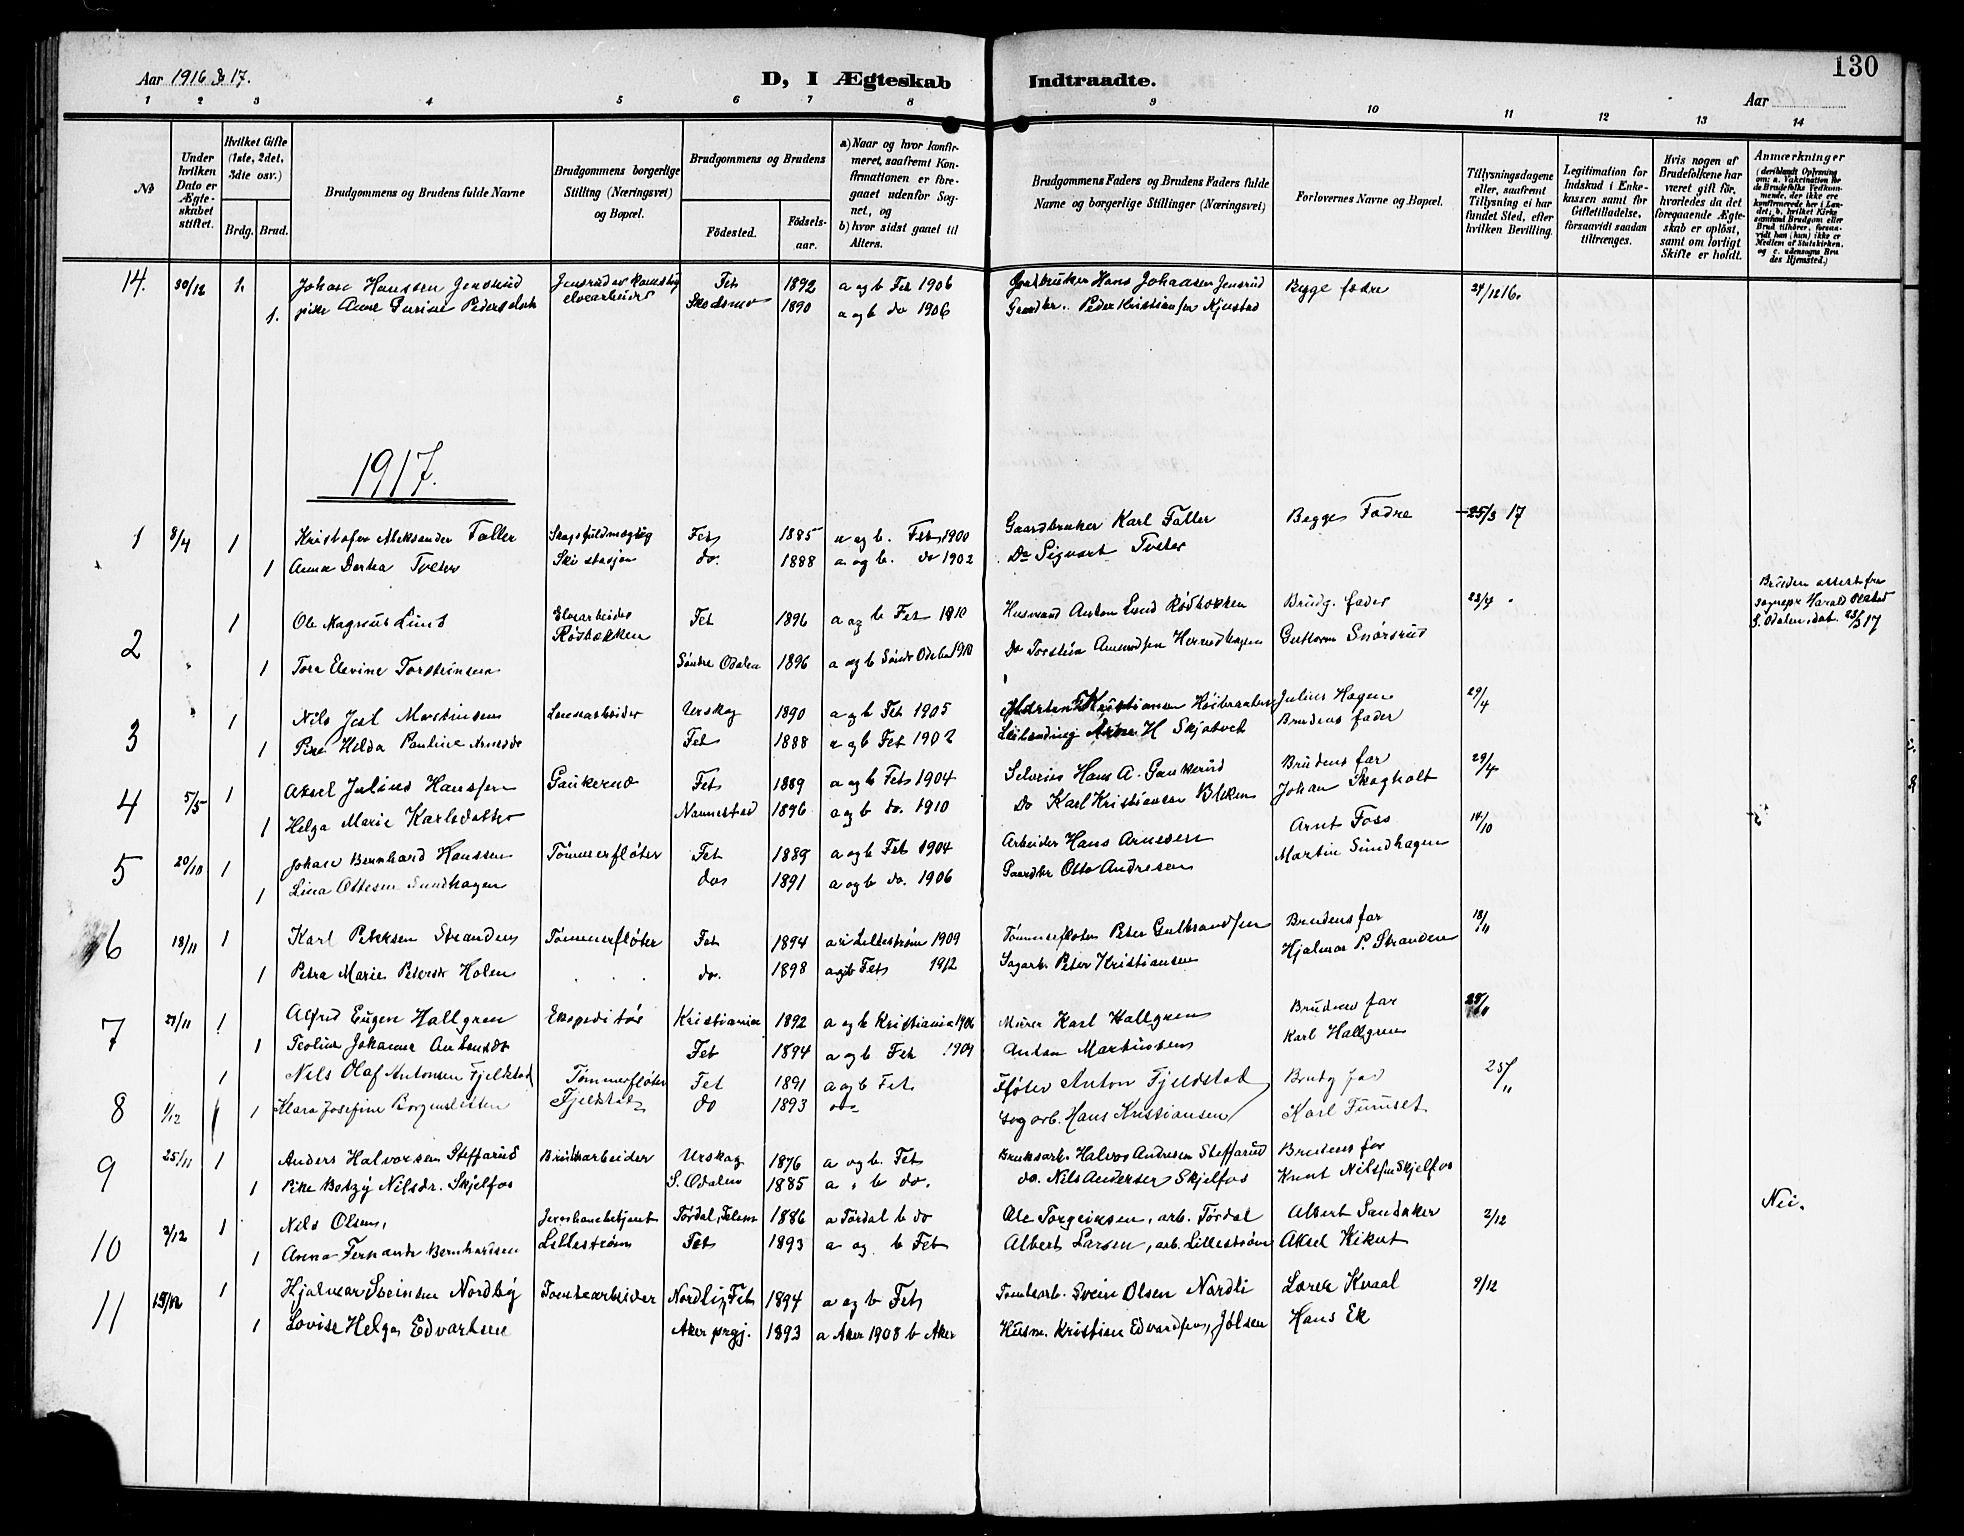 Aar 1916 & 17.
D, I Ægteskab Indtraadte.
130
Aar
1 2 3 4 5 6 7 8 9 10 11 12 13 14
No
Under hvilken Dato er Ægteskabet stiftet.
Hvilket Gifte (1ste, 2det, 3die osv.)
Brdg. Brud.
Brudgommens og Brudens fulde Navne
Brudgommens borgerlige Stilling (Næringsvei) og Bopæl.
Brudgommens og Brudens
Fødested.
Fødsels-aar.
a) Naar og hvor konfirmeret, saafremt Konfirmationen er foregaaet udenfor Sognet, og
b) hvor sidst gaaet til Alters.
Brudgommens Faders og Brudens Faders fulde Navne og borgerlige Stillinger (Næringsvei)
Forlovernes Navne og Bopæl.
Tillysningsdagene eller, saafremt Tillysning ei har fundet Sted, efter hvilken Bevilling.
Legitimation for Indskud i Enkekassen samt for Giftetilladelse, forsaavidt saadan tiltrænges.
Hvis nogen af Brudefolkene har været gift før, hvorledes da det foregaaende Ægteskab er opløst, samt om lovligt Skifte er holdt.
Anmærkninger (deriblandt Oplysning om: a. Vakcination for de Brudefolks Vedkommende, der ikke ere konfirmerede her i Landet; b. hvilket Kirkesamfund Brudgom eller Brud tilhører, forsaavidt han (hun) ikke er Medlem af Statskirken, og c. udensogns Brudes Hjemsted.)
14. 30/12 1. Johan Hanssen Jensrud Fet 1892 a og b Fet 1906 Gaardbruker Hans Johansen Jensrud Begge fædre 24/12 16.
1. pike Anne Gurine Pedersdatter Skedsmo 1890 a og b do 1906 Gaardbr. Peder Kristiansen Kjustad
1917.
1 8/4 1 Kristofer Aleksander Faller Fet 1885 a og b. Fet 1900 Gaardbruker Karl Faller Begges Fædre 25/3 17
1 Anna Dortea Tveter Ski stasjon do. 1888 a og b. do 1902 Do Sigvart Tveter
2 1 Ole Magnus Lund Elvearbeider Rødbakken Fet 1896 a og b Fet 1910 Husmand Anton Lund Rødbakken Brudg. fader 23/4
Bruden attest fra sognepr Harald S. Odalen, dat. 23/3 17
1 Tora Elevine Torsteinsen Søndre Odalen 1896 a og b Søndr Odalen 1910 Do Torstein Amundsen Guttorm Snørsrud
3 1 Nils Joel Martinsen Urskog 1890 a og b Fet 1905 Martin Kristiansen Julius Hagen 29/4
1 Pike Hilda Pauline Arnesdr Fet 1888 a og b Fet 1902 Leilending Arne H Skjatvet Brudens fader
4 5/5 1 Aksel Julius Hanssen Gaukerud Fet 1889 a og b Fet 1904 Selveier Hans A. Gaukerud Brudens far 29/4
1 Helga Marie Karlsdatter Nannestad 1896 a og b do. 1910 Do Karl Kristiansen Bleken Johan Skogholt
5 20/10 1 Johan Bernhard Hanssen Tømmerfløter Fet 1889 a og b Fet 1904 Arbeider Hans Arnesen Arnt Foss 14/10
1 Lina Ottesen Sundhagen do 1891 a og b do. 1906 Gaardbr Otto Andresen Martin Sundhagen
6 18/11 1 Karl Petersen Stranden Tømmerfløter Fet 1894 a i Lillestrøm 1909 Tømmerfløter Peter Gulbrandsen Brudens far 18/11
1 Petra Marie Petersdr Holen do. 1898 a og b Fet 1912 Sagarb. Peter Kristiansen Hjalmar P. Stranden
7 21/11 1 Alfred Eugen Hallgren Ekspeditør Kristiania 1892 a og b Kristiania 1906 Murer Karl Hallgren Brudens far
1 Teoline Johanne Antonsdr Fet 1894 a og b Fet 1909 Anton Martinsen Karl Hallgren
8 1/12 1 Nils Olaf Antonsen Fjeldstad Tømmerfløter Fjeldstad Fet 1891 a og b Fet Fløter Anton Fjeldstad Brudg far 25/11
1 Klara Josefine Borgensletten do 1893 do Sagarb. Hans Kristiansen Karl Furuset
9 25/11 1 Anders Halvorsen Steffarud Bruksarbeider Urskog 1876 a og b. Fet Bruksarb. Halvor Andresen Steffarud Brudens far
1 Pike Betzy Nilsdr. Skjelfos S. Odalen 1885 a b do. do. Nils Andersen Skjelfos Knut Nilsen Skjelfos
10 2/12 1 Nils Olsen, Jernbanebetjent Lillestrøm Tørdal, Telem 1886 a Tørdal b do Ole Torgeirsen, arb. Tørdal Albert Sandaker 2/12 Nei.
1 Anna Fernanda Bernhardsen Fet 1893 a og b Fet Albert Larsen, arb. Lillestrøm Aksel Kikut
11 15/12 1 Hjalmar Sveinsen Nordby Tomtearbeider Nordli, Fet 1894 a og b Fet Tomtearb. Svein Olsen Nordli Lorek Kvaal 9/12
1 Lovise Helga Edvartsen Aker prgj. 1893 a Aker 1908 b Aker Husm. Kristian Edvardsen, Jølsen Hans Ek